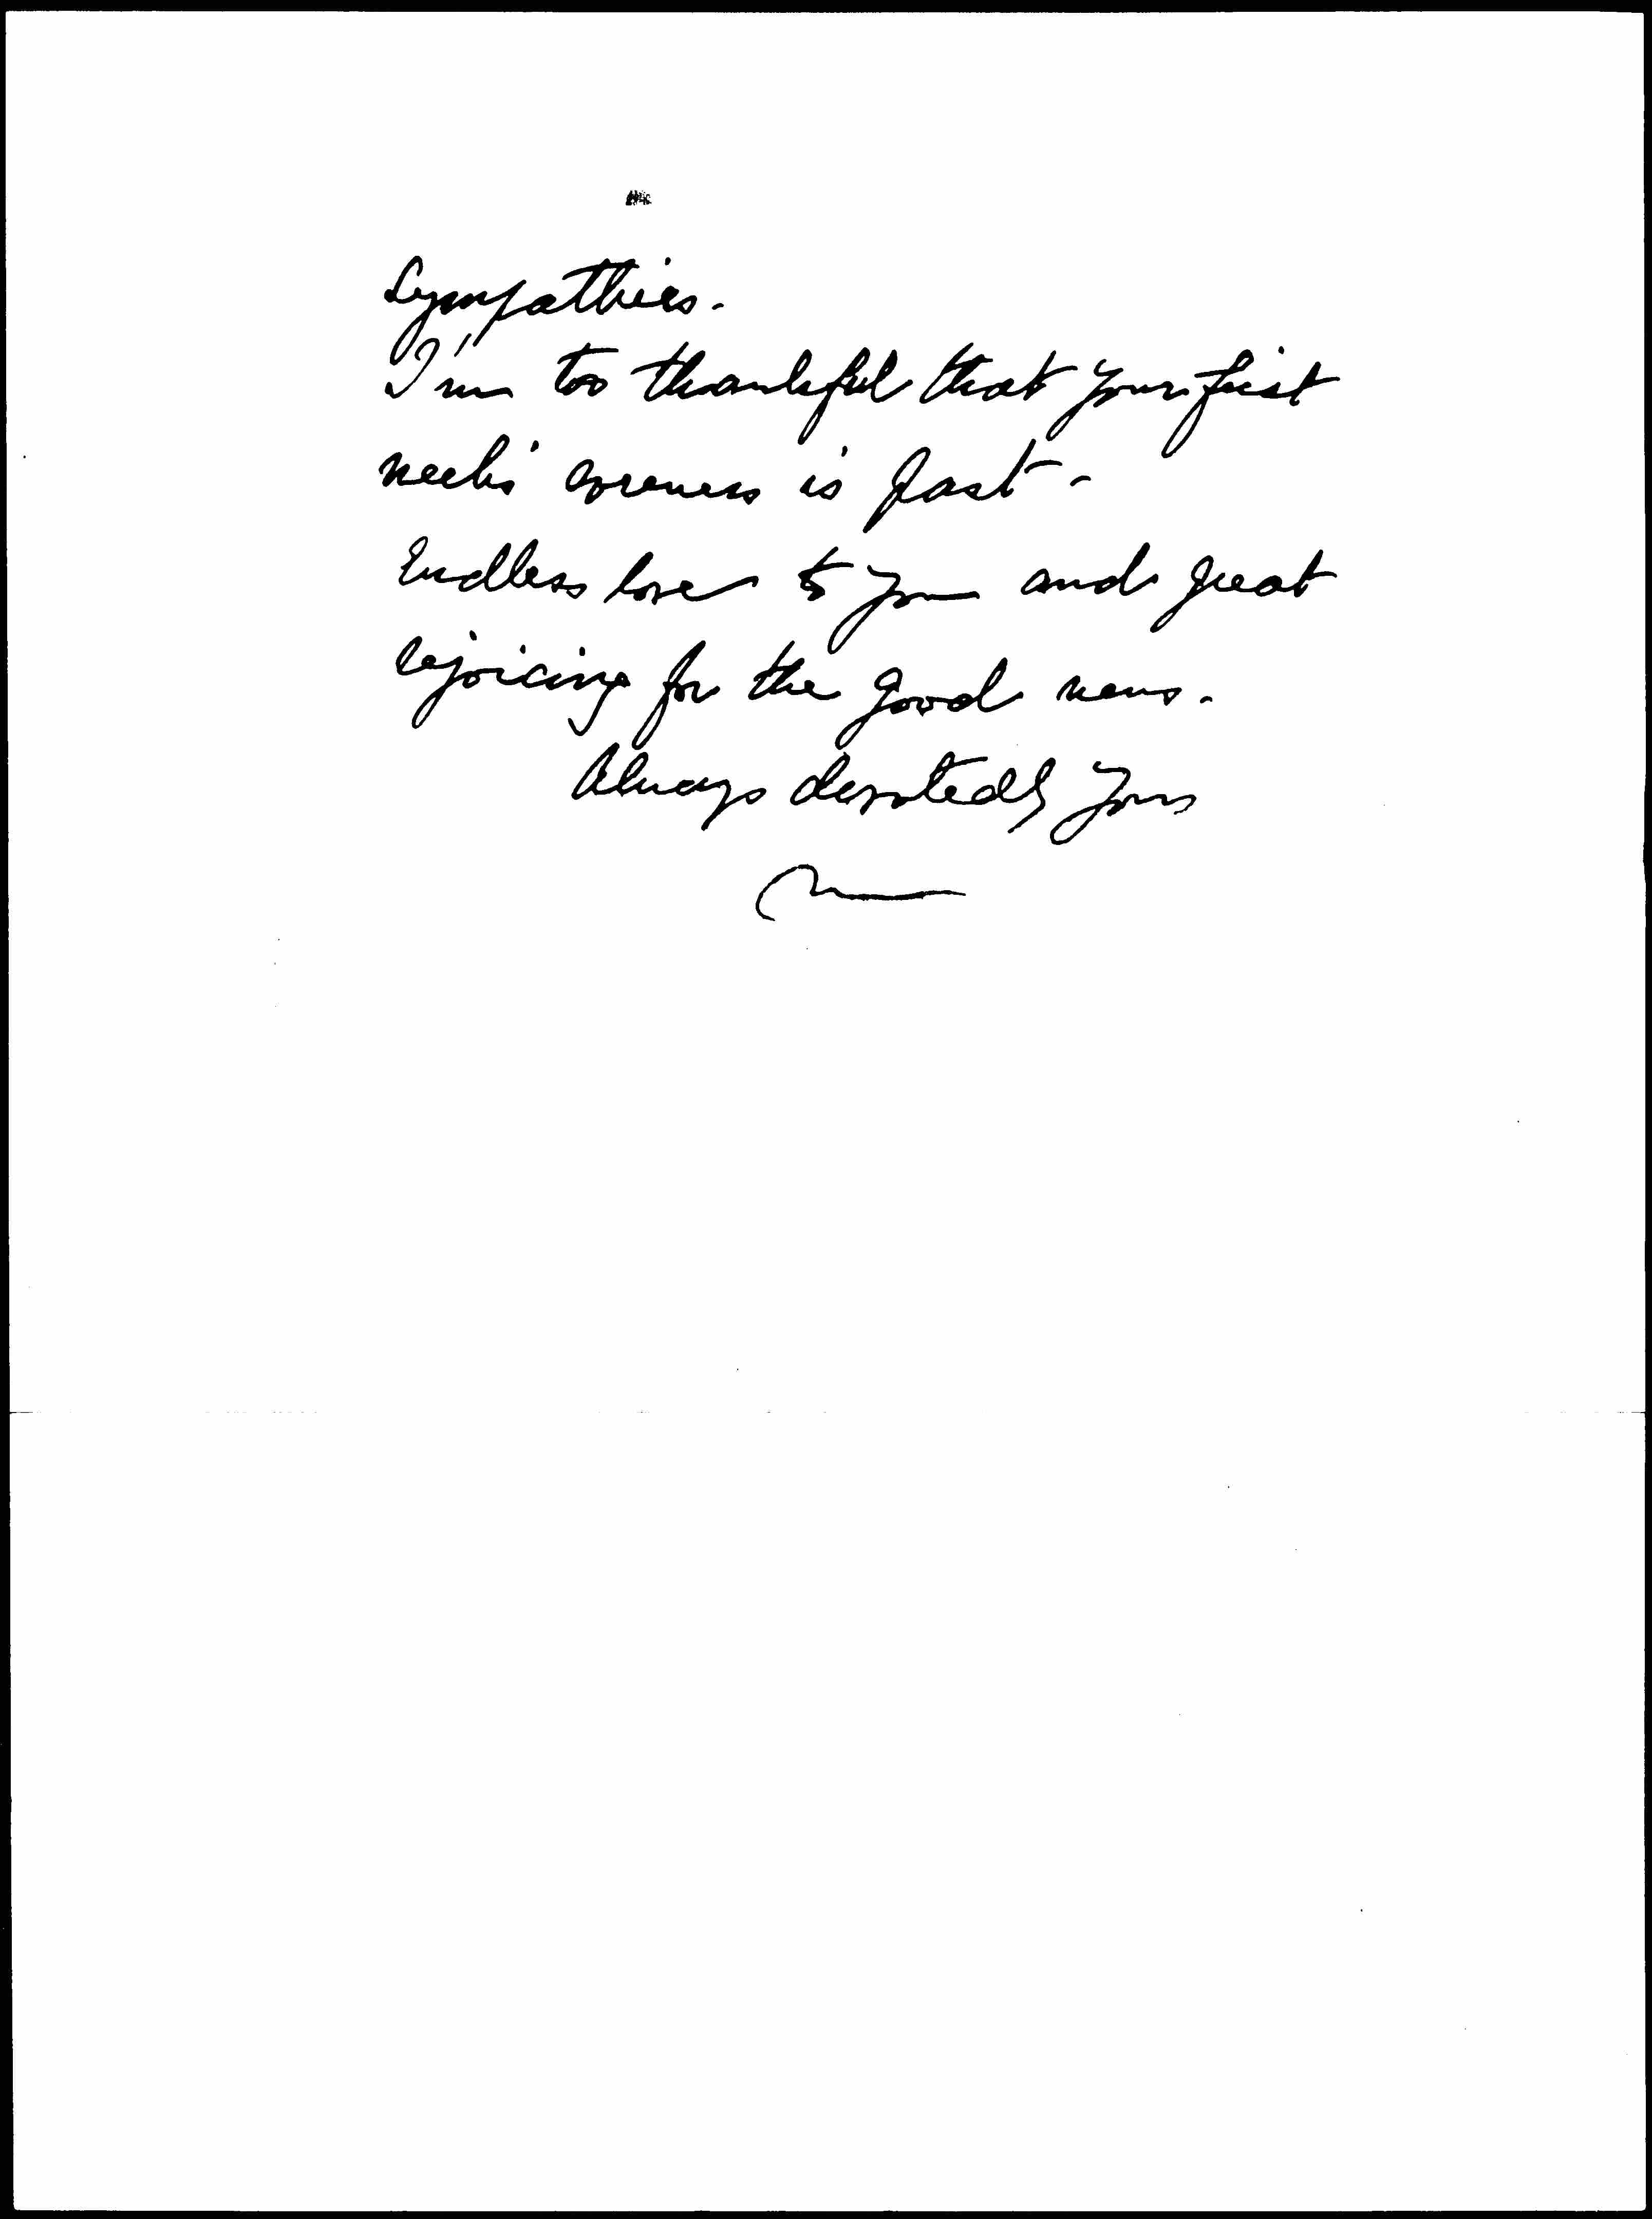 Sympathies.
I'm too thankful that your first
week's soreness is past -
Endless love to you and great
rejoicing for the good news.
Always devotedly yours